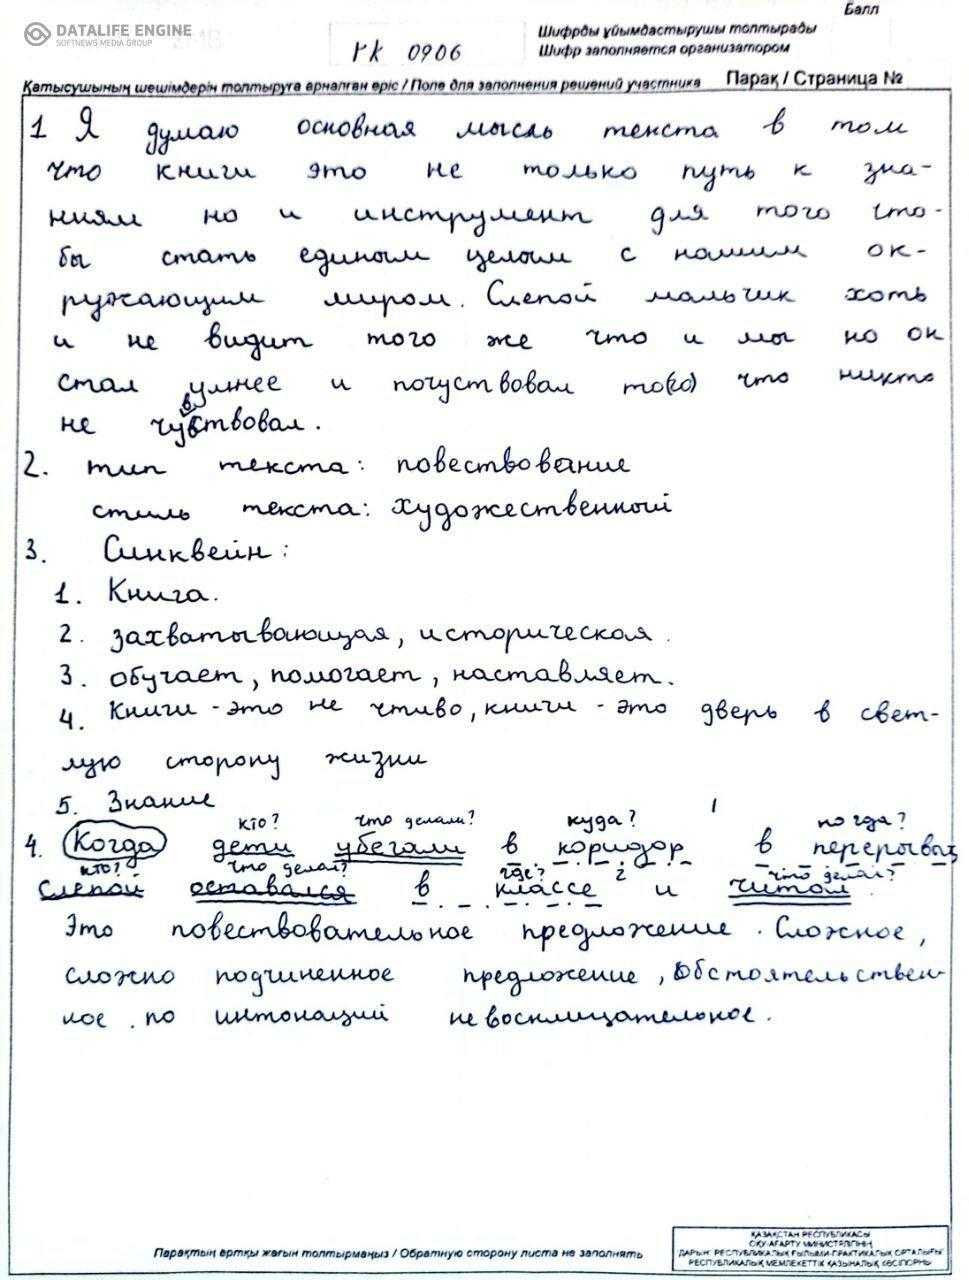 DATALIFE ENGINE
SOFTNEWS MEDIA GROUP
Балл
Шифрды ұйымдастырушы толтырады
Шифр заполняется организатором
ГК 0906
Қатысушының шешімдерін толтыруға арналған өріс / Поле для заполнения решений участника Парақ / Страница №2
1 Я думаю основная мысль текста в том
что книги это не только путь к зна-
ниям но и инструмент для того что-
бы стать единым целым с нашим ок-
ружающим миром. Слепой мальчик хоть
и не видит того же что и мы но он
стал умнее и почуствовал то(го) что никто
не чувствовал.
2. тип текста: повествование
стиль текста: художественный
3. Синквейн:
1. Книга.
2. захватывающая, историческая.
3. обучает, помогает, наставляет.
4. Книги - это не чтиво, книги - это дверь в свет-
лую сторону жизни
5. Знание
кто? что делали? куда? 1 когда?
4. Когда дети убегали в коридор в перерывах
кто? что делал? где? 2 что делал?
слепой оставался в классе и читал.
Это повествовательное предложение. Сложное,
сложно подчиненное предложение, Обстоятельствен-
ное. по интонаций невосклицательное.
Парақтың артқы жағын толтырмаңыз / Обратную сторону листа не заполнять
ҚАЗАҚСТАН РЕСПУБЛИКАСЫ
ОҚУ-АҒАРТУ МИНИСТРЛІГІНІҢ
«ДАРЫН» РЕСПУБЛИКАЛЫҚ ҒЫЛЫМИ-ПРАКТИКАЛЫҚ ОРТАЛЫҒЫ
РЕСПУБЛИКАЛЫҚ МЕМЛЕКЕТТІК ҚАЗЫНАЛЫҚ КӘСІПОРНЫ